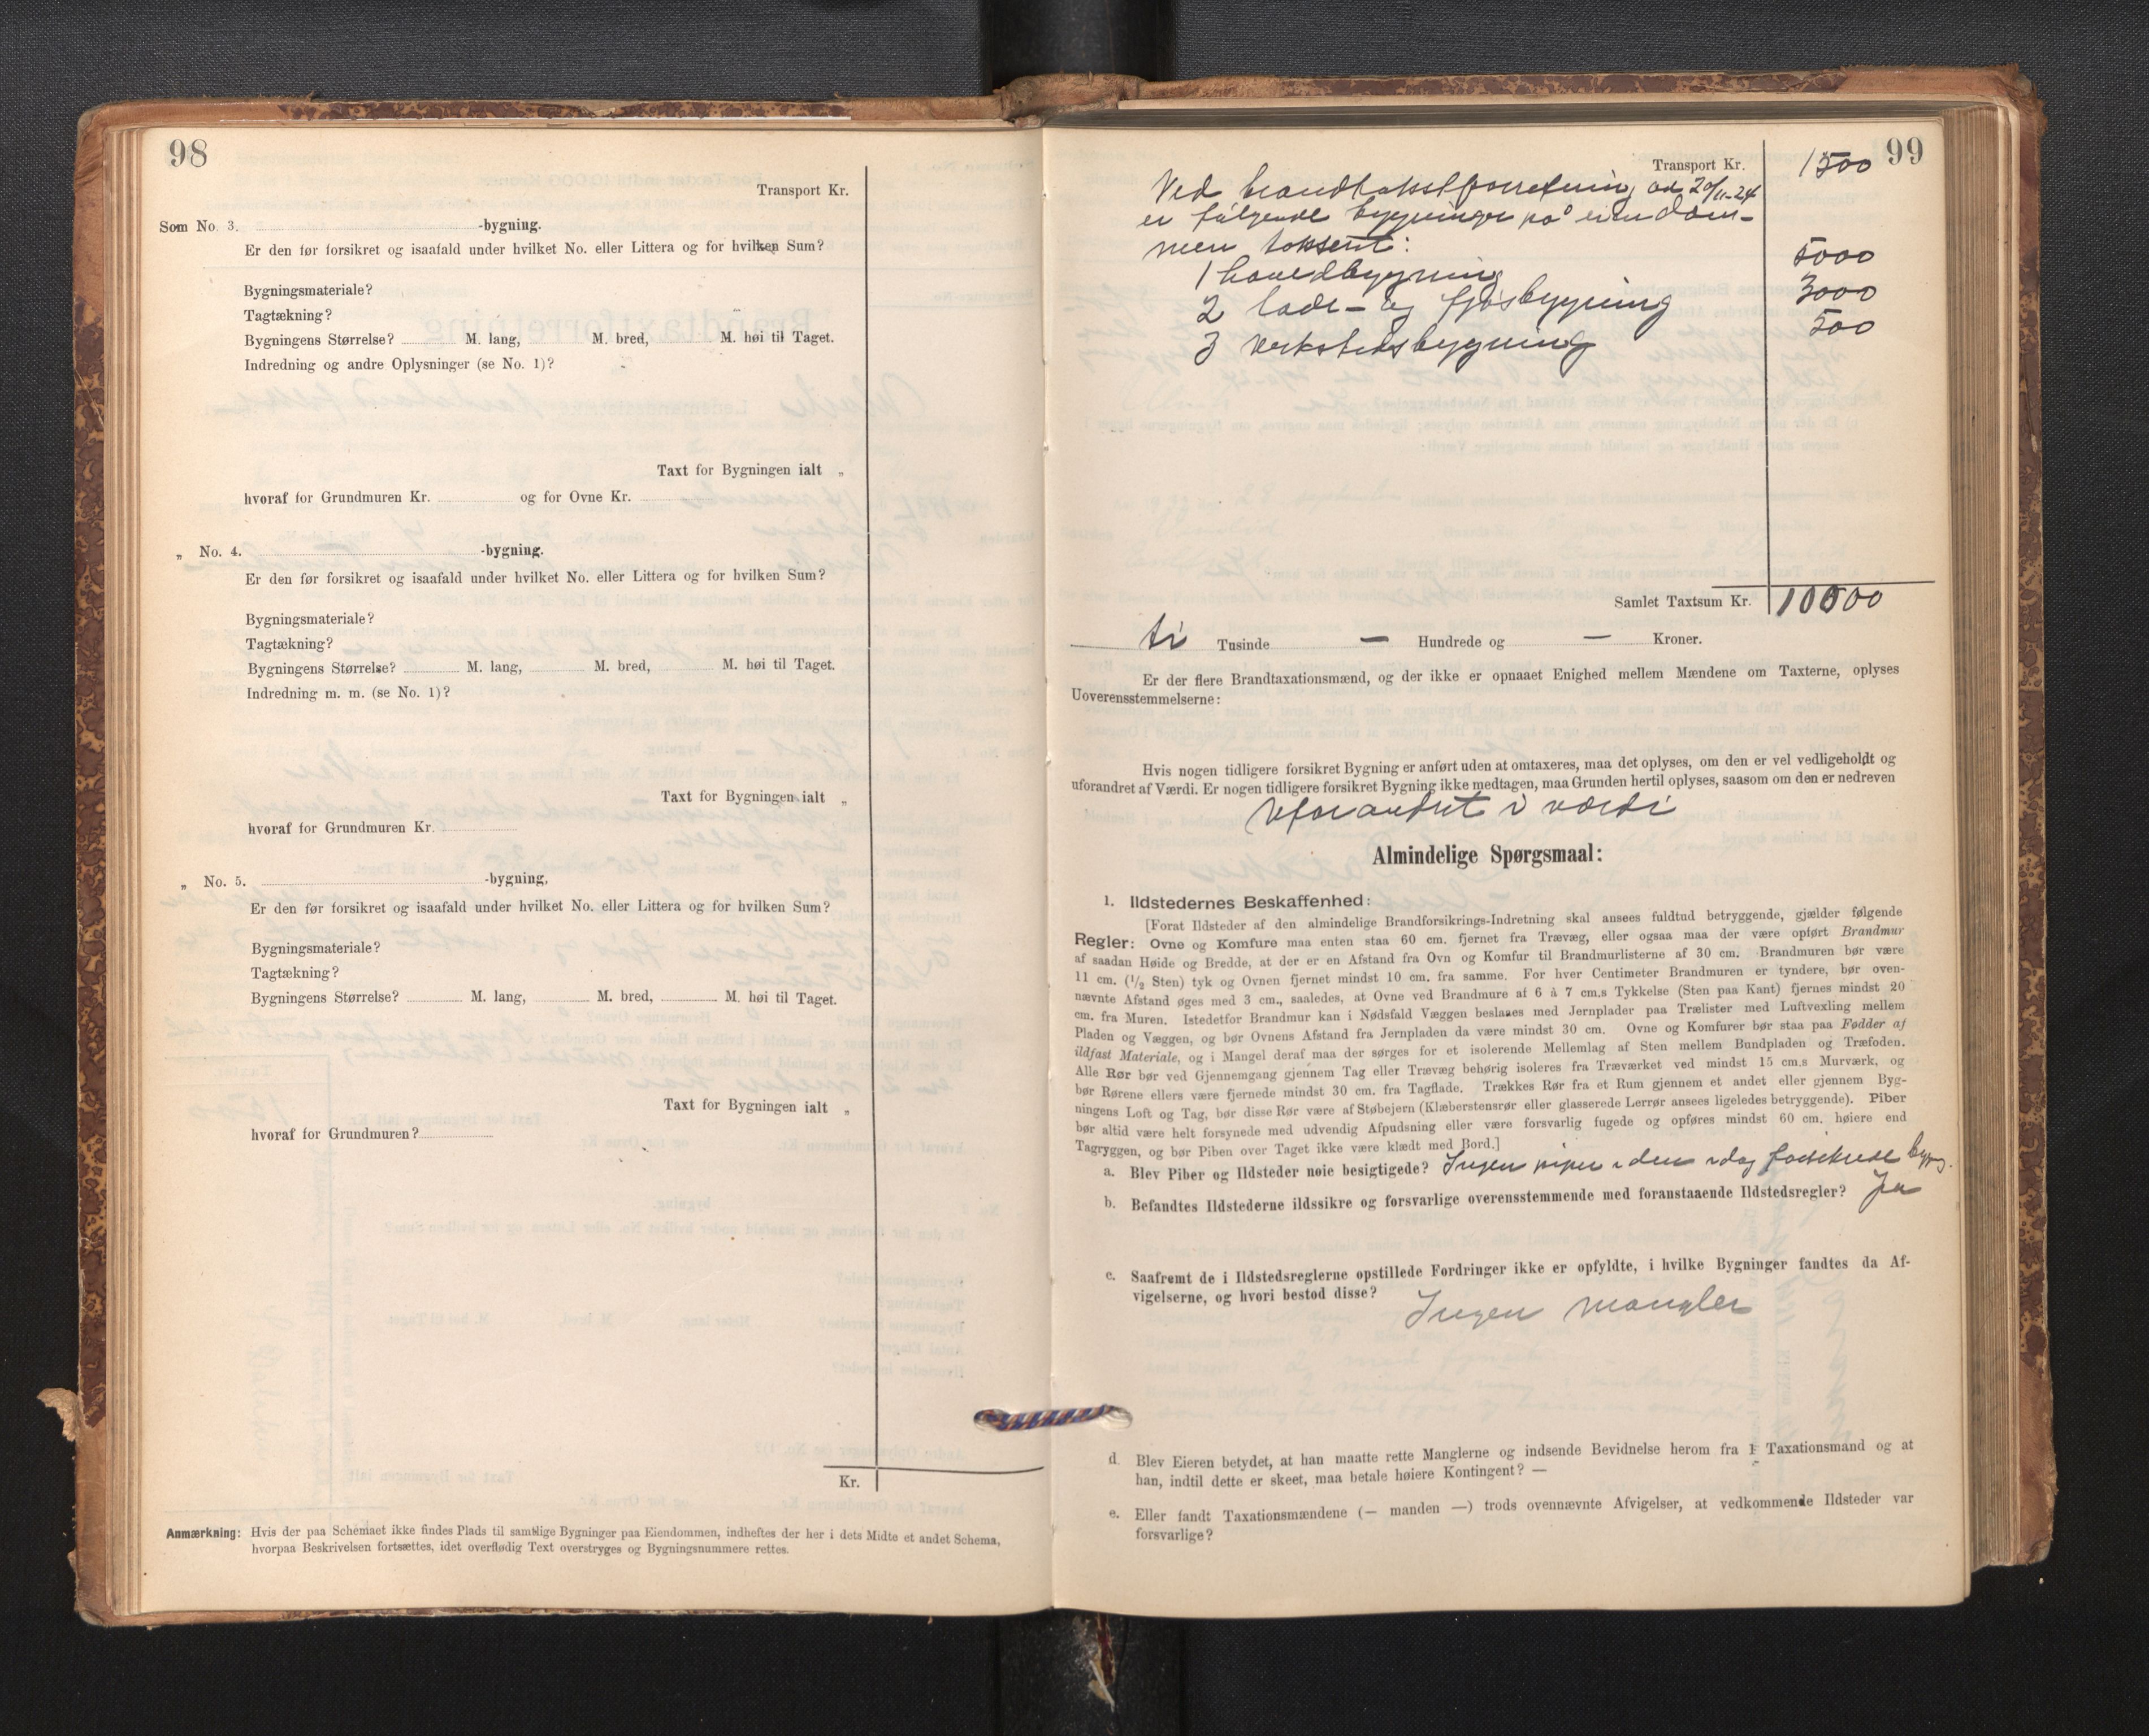 98
Transport Kr.
Som No. 3. -bygning.
Er den før forsikret og isaafald under hvilket No. eller Littera og for hvilken Sum?
Bygningsmateriale?
Tagtækning?
Bygningens Størrelse? M. lang, M. bred, M. høi til Taget.
Indredning og andre Oplysninger (se No. 1)?
Taxt for Bygningen ialt „
hvoraf for Grundmuren Kr. og for Ovne Kr.
„ No. 4. -bygning.
Er den før forsikret og isaafald under hvilket No. eller Littera og for hvilken Sum?
Bygningsmateriale?
Tagtækning?
Bygningens Størrelse? M. lang, M. bred, M. høi til Taget.
Indredning m. m. (se No. 1)?
Taxt for Bygningen ialt „
hvoraf for Grundmuren Kr.
„ No. 5. -bygning.
Er den før forsikret og isaafald under hvilket No. eller Littera og for hvilken Sum?
Bygningsmateriale?
Tagtækning?
Bygningens Størrelse? M. lang, M. bred, M. høi til Taget.
Taxt for Bygningen ialt „
hvoraf for Grundmuren?
Kr.
Anmærkning: Hvis der paa Schemaet ikke findes Plads til samtlige Bygninger paa Eiendommen, indheftes der her i dets Midte et andet Schema,
hvorpaa Beskrivelsen fortsættes, idet overflødig Text overstryges og Bygningsnummere rettes.
99
Transport Kr. 1500
Ved brandtakstforretning av 20/11-24
er følgende bygninger på eiendom-
men taksert:
1 hovedbygning 5000
2 lade- og fjøsbygning 3000
3 verkstedsbygning 500
Samlet Taxtsum Kr. 10000
ti Tusinde — Hundrede og — Kroner.
Er der flere Brandtaxationsmænd, og der ikke er opnaaet Enighed mellem Mændene om Taxterne, oplyses
Uoverensstemmelserne:
Hvis nogen tidligere forsikret Bygning er anført uden at omtaxeres, maa det oplyses, om den er vel vedligeholdt og
uforandret af Værdi. Er nogen tidligere forsikret Bygning ikke medtagen, maa Grunden hertil oplyses, saasom om den er nedreven
Uforandret i værdi
Almindelige Spørgsmaal:
1. Ildstedernes Beskaffenhed:
[Forat Ildsteder af den almindelige Brandforsikrings-Indretning skal ansees fuldtud betryggende, gjælder følgende
Regler: Ovne og Komfure maa enten staa 60 cm. fjernet fra Trævæg, eller ogsaa maa der være opført Brandmur
af saadan Høide og Bredde, at der er en Afstand fra Ovn og Komfur til Brandmurlisterne af 30 cm. Brandmuren bør være
11 cm. (1/2 Sten) tyk og Ovnen fjernet mindst 10 cm. fra samme. For hver Centimeter Brandmuren er tyndere, bør oven-
nævnte Afstand øges med 3 cm., saaledes, at Ovne ved Brandmure af 6 à 7 cm.s Tykkelse (Sten paa Kant) fjernes mindst 20
cm. fra Muren. Istedetfor Brandmur kan i Nødsfald Væggen beslaaes med Jernplader paa Trælister med Luftvexling mellem
Pladen og Væggen, og bør Ovnens Afstand fra Jernpladen da være mindst 30 cm. Ovne og Komfurer bør staa paa Fødder af
ildfast Materiale, og i Mangel deraf maa der sørges for et isolerende Mellemlag af Sten mellem Bundpladen og Træfoden.
Alle Rør bør ved Gjennemgang gjennem Tag eller Trævæg behørig isoleres fra Træværket ved mindst 15 cm.s Murværk, og
bør Rørene ellers være fjernede mindst 30 cm. fra Tagflade. Trækkes Rør fra et Rum gjennem et andet eller gjennem Byg-
ningens Loft og Tag, bør disse Rør være af Støbejern (Klæberstensrør eller glasserede Lerrør ansees ligeledes betryggende). Piber
bør altid være helt forsynede med udvendig Afpudsning eller være forsvarlig fugede og opføres mindst 60 cm. høiere end
Tagryggen, og bør Piben over Taget ikke være klædt med Bord.]
a. Blev Piber og Ildsteder nøie besigtigede? Ingen piper i den idag forsikrede bygng.
b. Befandtes Ildstederne ildssikre og forsvarlige overensstemmende med foranstaaende Ildstedsregler? Ja
c. Saafremt de i Ildstedsreglerne opstillede Fordringer ikke er opfyldte, i hvilke Bygninger fandtes da Af-
vigelserne, og hvori bestod disse?
Ingen mangler
d. Blev Eieren betydet, at han maatte rette Manglerne og indsende Bevidnelse herom fra 1 Taxationsmand og at
han, indtil dette er skeet, maa betale høiere Kontingent? —
e. Eller fandt Taxationsmændene (— manden —) trods ovennævnte Afvigelser, at vedkommende Ildsteder var
forsvarlige?